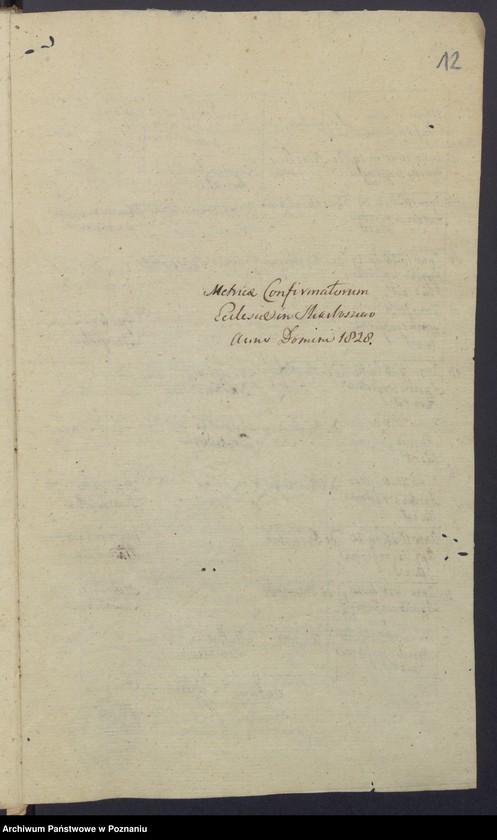 12
Metricæ Confirmatorum
Ecclesiæ in
Anno Domini 1828.
Archiwum Państwowe w Poznaniu